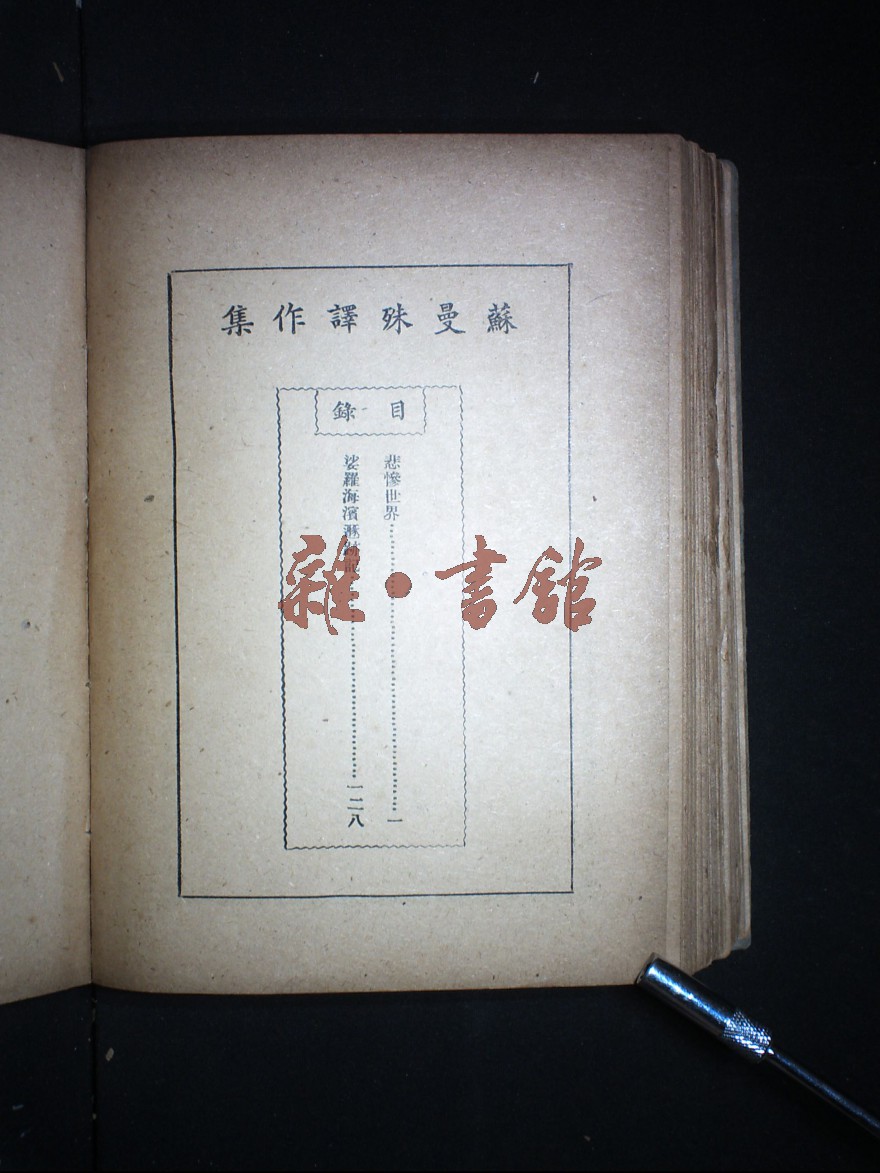 蘇曼殊譯作集
目錄
悲慘世界⋯⋯⋯⋯⋯⋯⋯⋯⋯⋯一
娑羅海濱遯跡記⋯⋯⋯⋯⋯⋯⋯⋯一二八
雜·書館